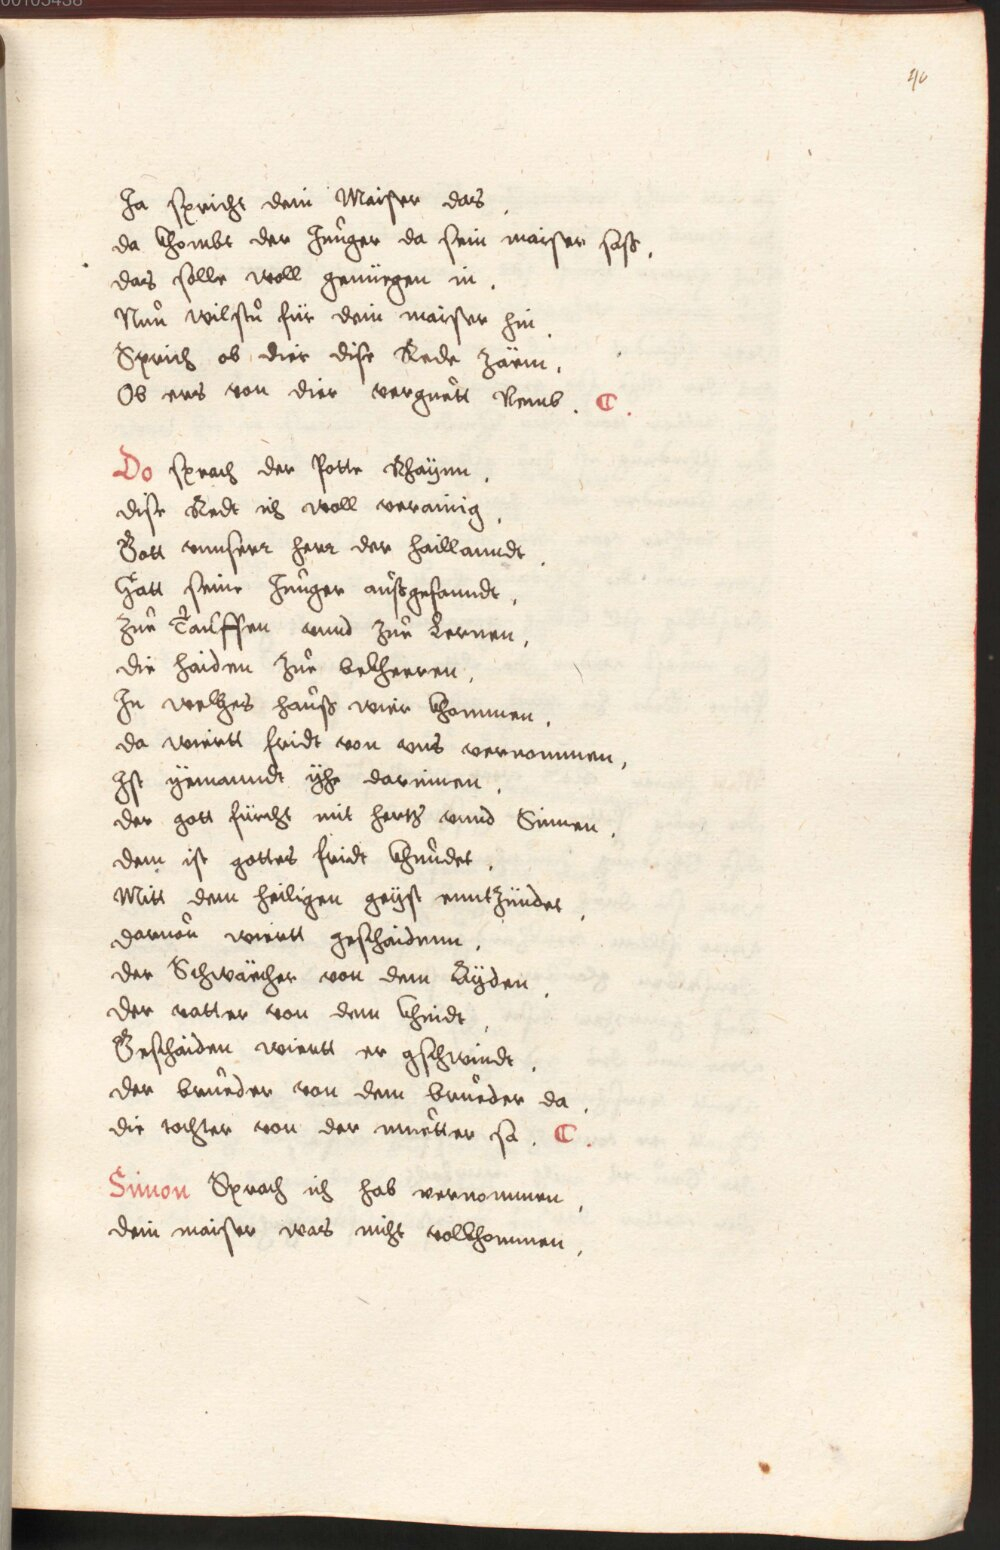 40
Ja spricht dein Maister das.
da khombt der Junger da sein maister sass.
das solle woll genüegen in.
Nun wilstu für dein maister hin.
Sprich ob dier dise Rede zäm.
Ob ers von dier verguett Nemb. C.
Do sprach der Potte Rhaynn.
dise Redt ich woll verainig.
Gott vnnserr herr der haillanndt.
Hatt seine Junger außgesanndt.
Zue Tauffen vnnd zue Lernen.
die haiden zue bekheeren.
In welches hauß wier khommen.
da wiertt fridt von vns vernommen.
Ist yemanndt yhe darinnen.
der gott fürcht mit hertz vnnd Sinnen.
dem ist gottes fridt khundet.
Mitt dem heiligen geyst enntzündet.
daruon wiertt geschaidenn.
der Schwächer von dem Ayden.
der vatter von dem khindt.
Geschaiden wiertt er gschwindt.
der brueder von dem brueder da.
die tochter von der muetter sa. C.
Simon Sprach ich hab vernommen.
dein maister was nicht volkhommen.